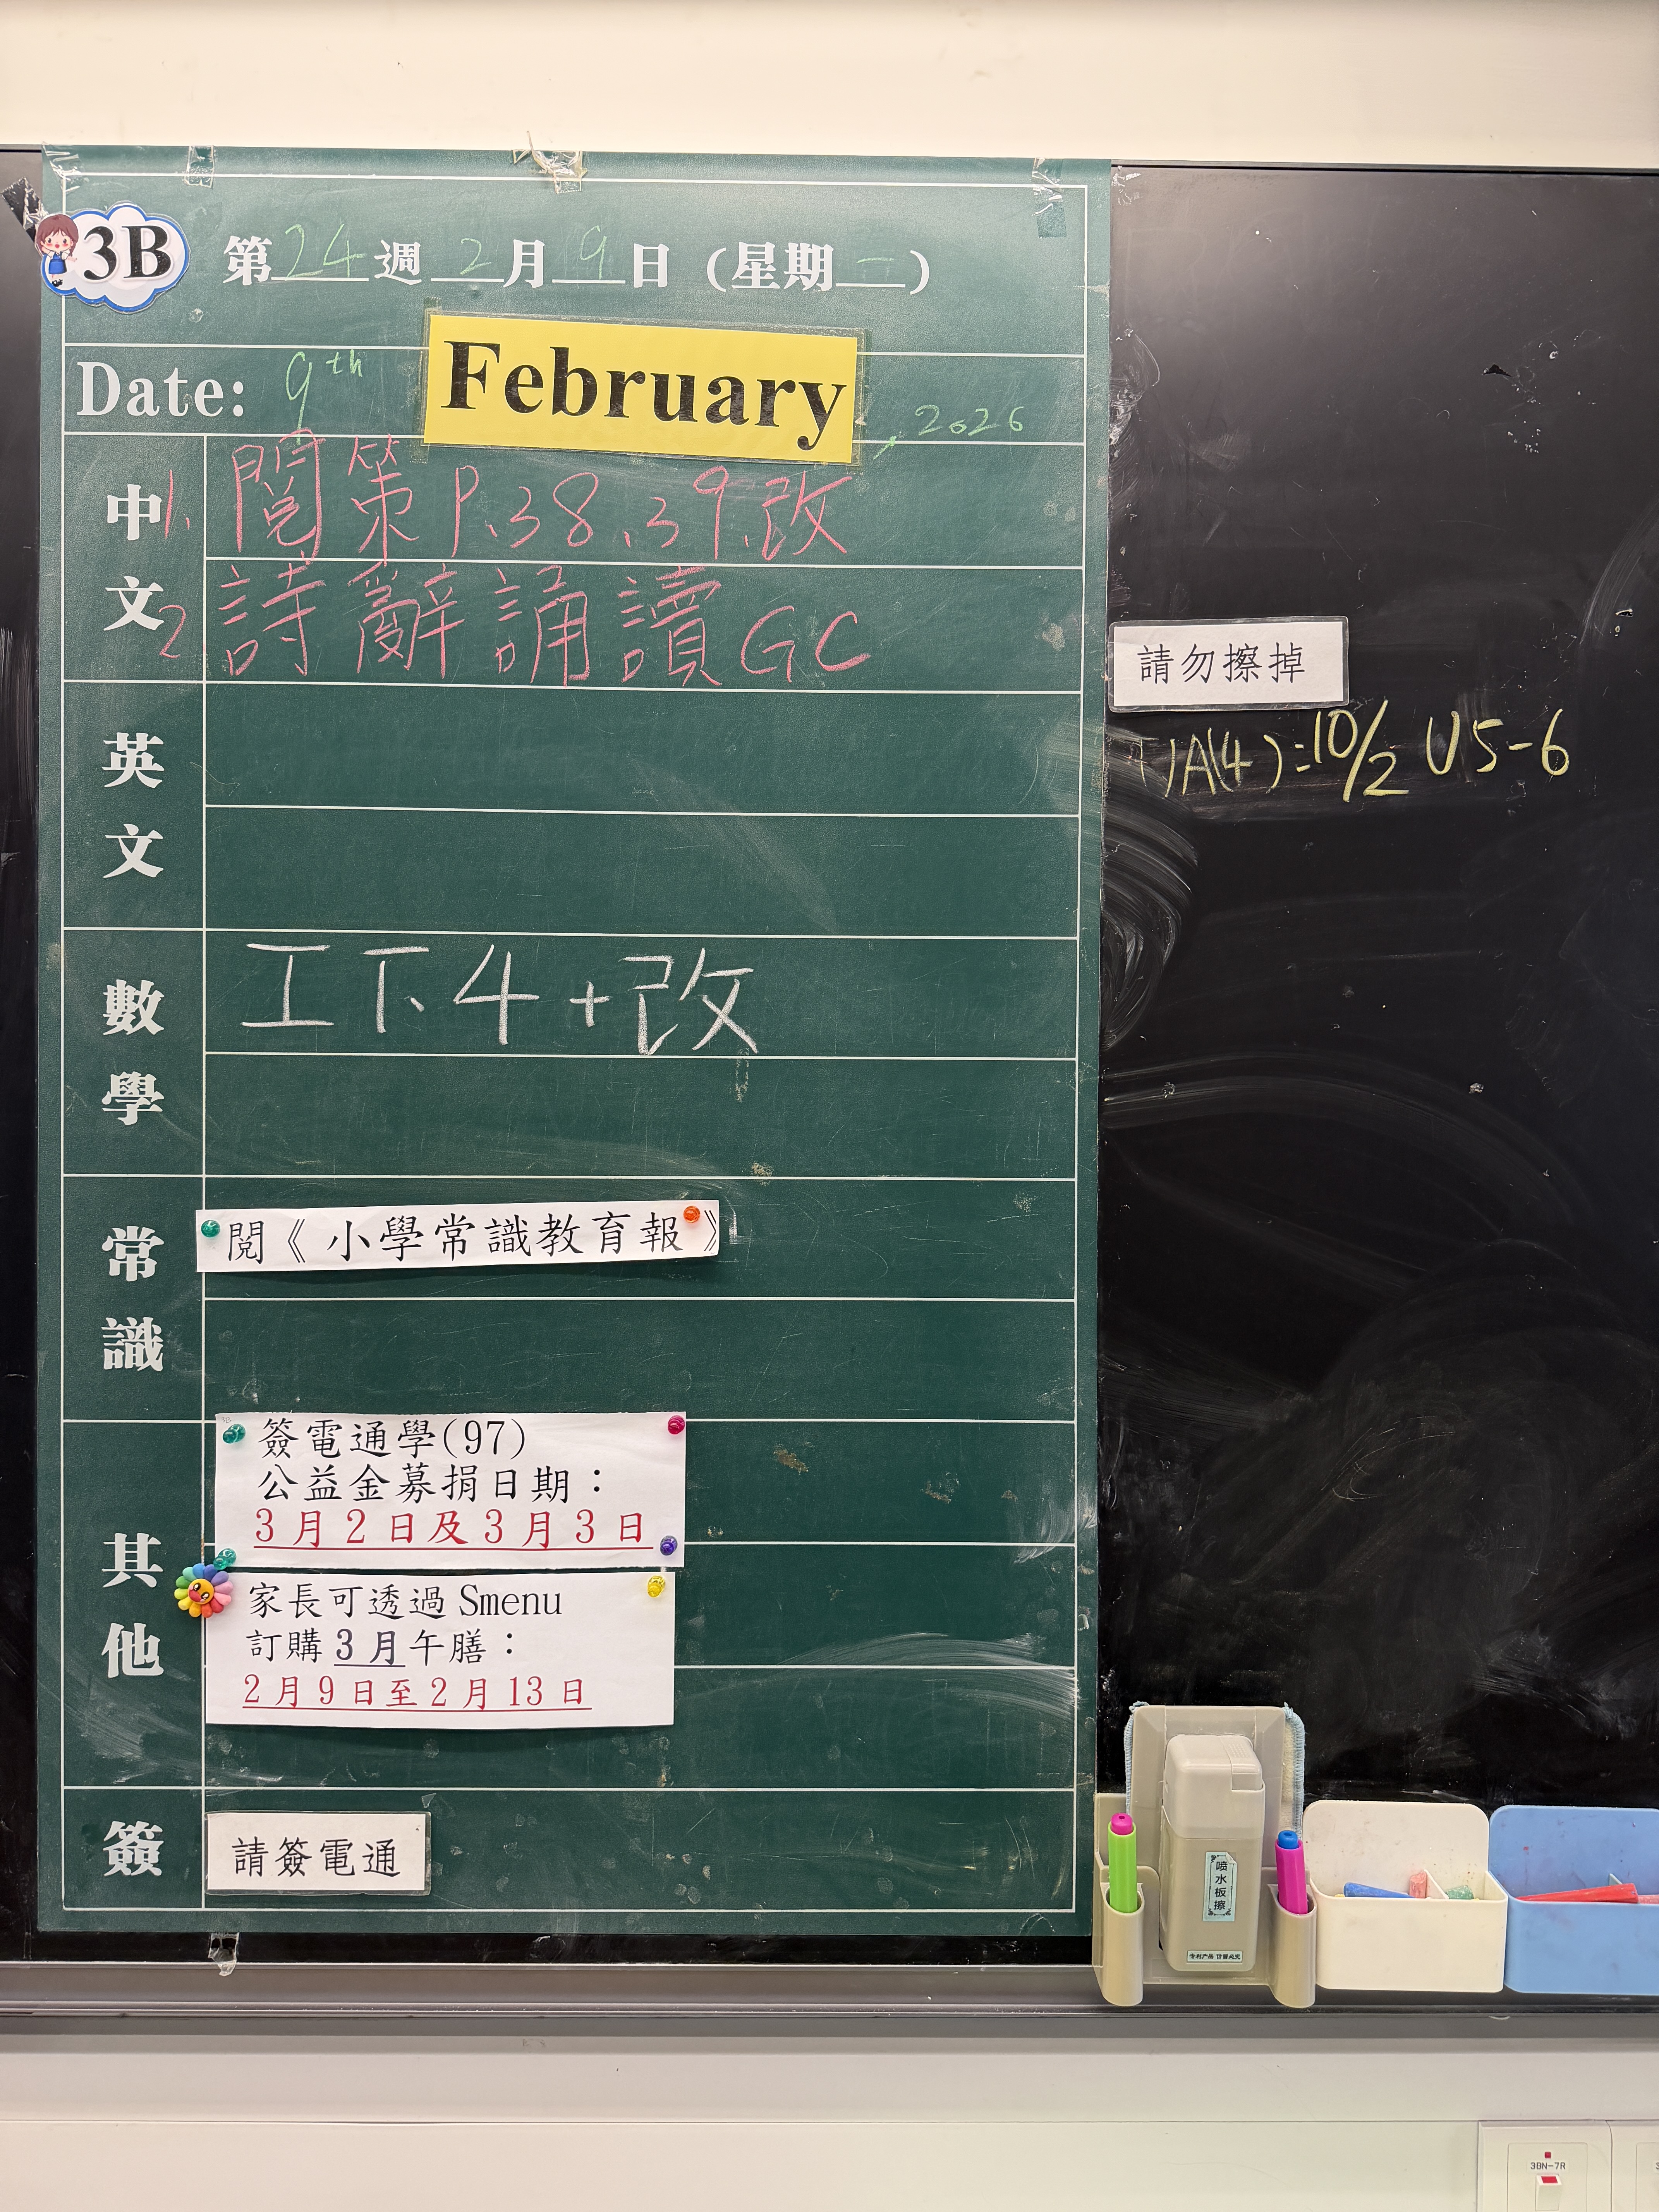 3B
第24週 2月9日 (星期一)
Date: 9th February, 2026
中文
1. 閱策 P.38、39、改
2 詩辭誦讀 GC
英文
數學
工下4+改
常識
閱《小學常識教育報》
其他
簽電通學(97)
公益金募捐日期：
3月2日及3月3日
家長可透過 Smenu
訂購3月午膳：
2月9日至2月13日
簽
請簽電通
請勿擦掉
A(4)=10/2 U5-6
喷水板擦
专利产品 仿冒必究
3BN-7R